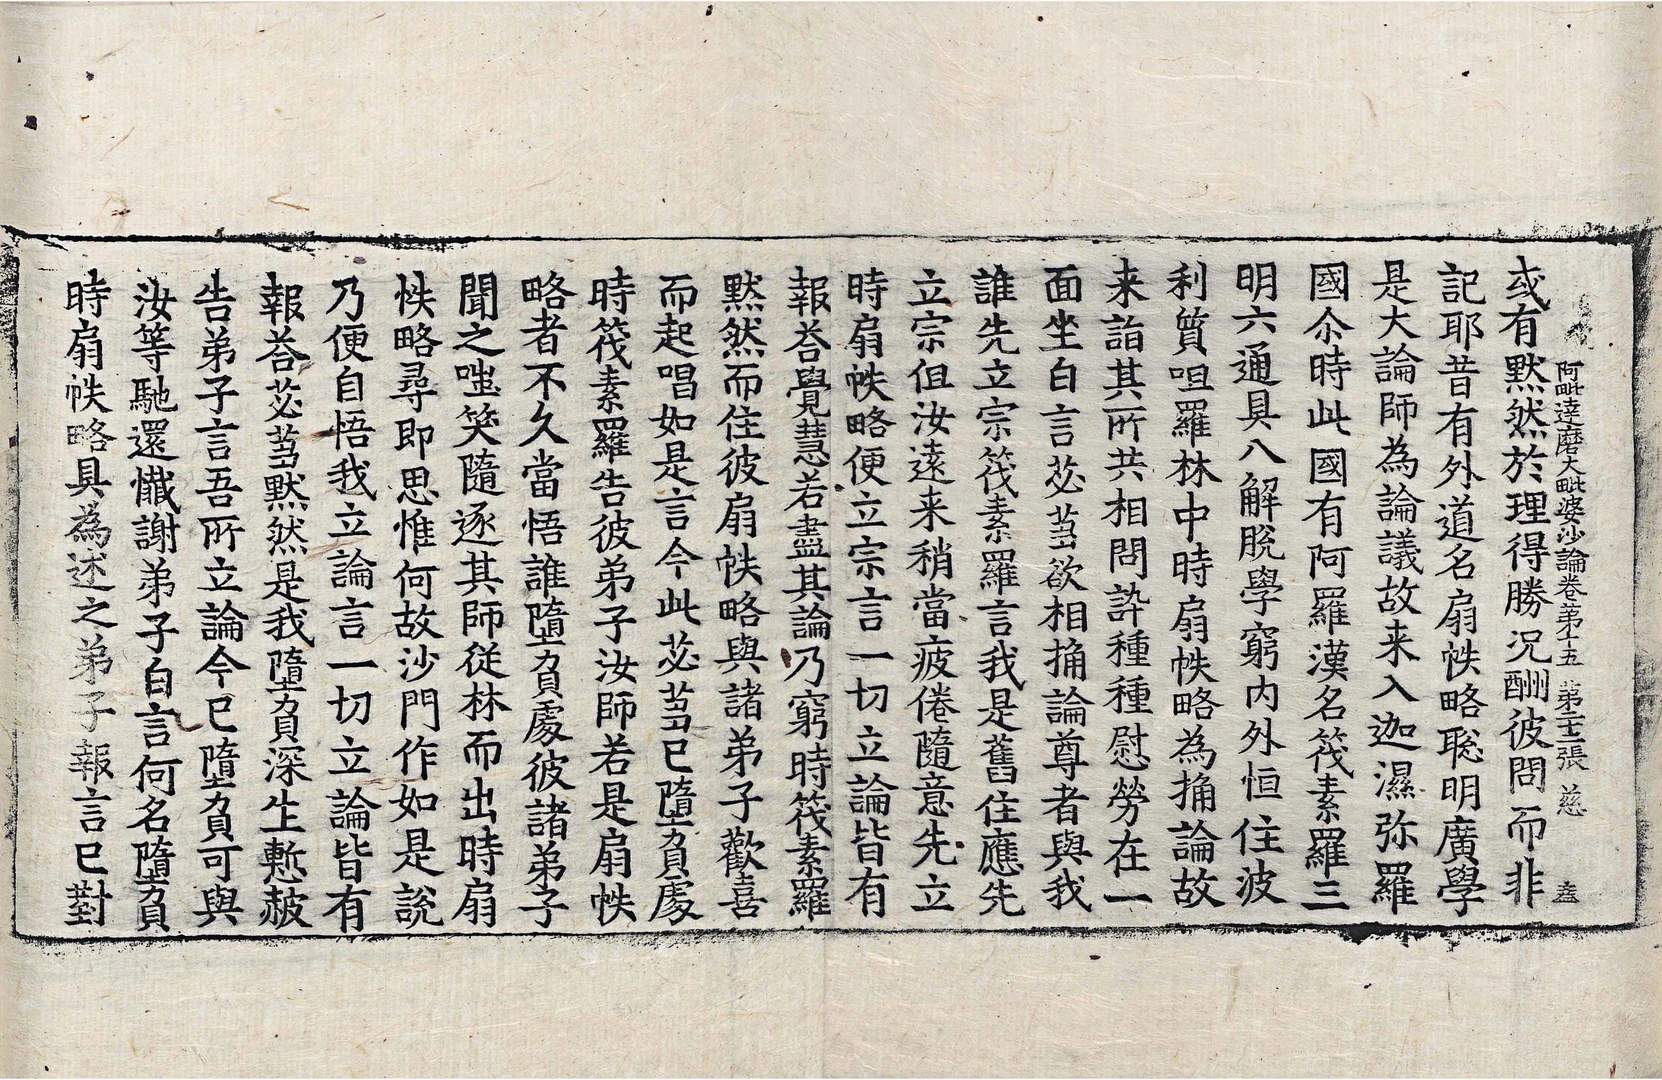 阿毗達磨大毗婆沙論卷第十五 第二十二張 慈
或有默然於理得勝況酬彼問而非
記耶昔有外道名扇帙略聡明廣學
是大論師為論議故来入迦濕弥羅
國尒時此國有阿羅漢名筏素羅三
明六通具八解脫學窮內外恒住波
利質呾羅林中時扇帙略為捔論故
来詣其所共相問訊種種慰勞在一
面坐白言苾蒭欲相捔論尊者與我
誰先立宗筏素羅言我是舊住應先
立宗但汝遠来稍當疲倦隨意先立
時扇帙略便立宗言一切立論皆有
報荅覺慧若盡其論乃窮時筏素羅
黙然而住彼扇帙略與諸弟子歡喜
而起唱如是言今此苾蒭已墮負處
時筏素羅告彼弟子汝師若是扇帙
略者不久當悟誰墮負處彼諸弟子
聞之嗤笑隨逐其師従林而出時扇
帙略尋即思惟何故沙門作如是說
乃便自悟我立論言一切立論皆有
報荅苾蒭黙然是我墮負深生慙赧
告弟子言吾所立論今已墮負可與
汝等馳還懺謝弟子白言何名墮負
時扇帙略具為述之弟子報言已對